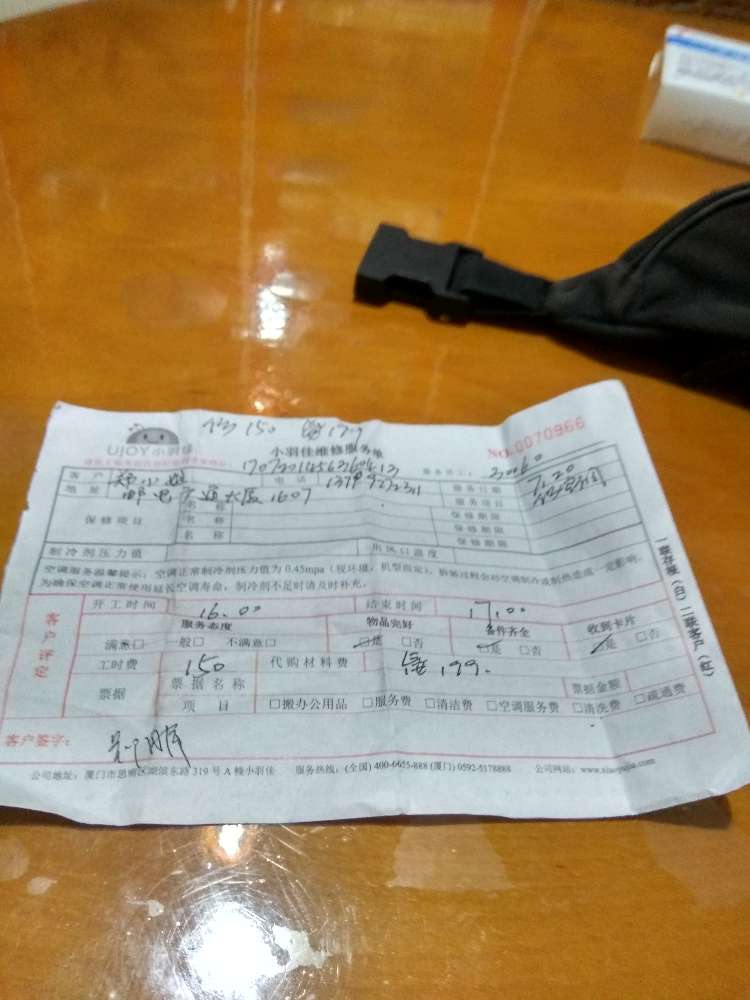 150 199
UJOY小羽佳
小羽佳维修服务单
NO.0070966
客户 郑小姐 电话 服务日期 7.20
地址 邮电交通大厦1607 名称 服务项目
保修项目 名称 保修期限
名称 保修期限
保修期限
制冷剂压力值 出风口温度
空调服务温馨提示:空调正常制冷剂压力值为0.45mpa(视环境、机型而定),拆装过程会对空调制冷或制热造成一定影响。
为确保空调正常使用延长空调寿命,制冷剂不足时请及时补充。
客户评定
开工时间 16.00 结束时间 17.00
服务态度 物品完好 备件齐全 收到卡片
满意□ 一般□ 不满意□ □是 □否 □是 □否 □是 □否
工时费 150 代购材料费 199.
票据 票据名称 票据金额
项目 □搬办公用品 □服务费 □清洁费 □空调服务费 □清洗费 □疏通费
客户签字:
公司地址:厦门市思明区湖滨东路319号A幢小羽佳 服务热线:(全国)400-6655-888 (厦门)0592-5178888 公司网站:www.xiaoyujia.com
一联存根(白)二联客户(红)